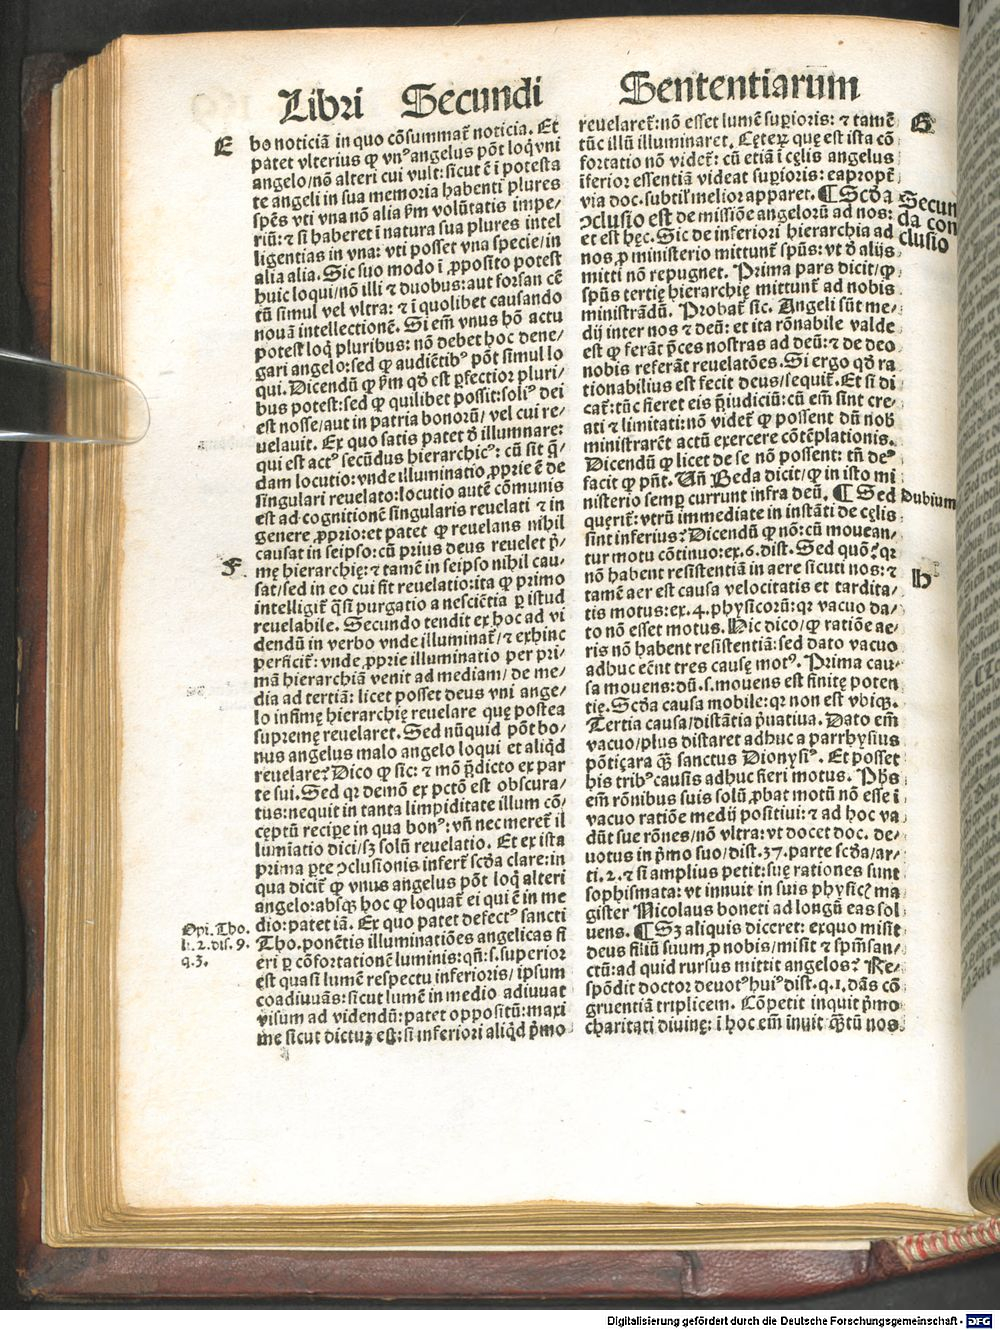 Libri Secundi Sententiarum
E
bo noticiã in quo cõsummat̃ noticia. Et
patet vlterius ꝙ vnꝰ angelus põt loq̃ vni
angelo/nõ alteri cui vult: sicut ẽ ĩ potesta
te angeli in sua memoria habenti plures
spẽs vti vna nõ alia ꝑm volũtatis impe/
riũ: ⁊ si haberet ĩ natura sua plures intel
ligentias in vna: vti posset vna specie/in
alia alia. Sic suo modo ĩ ꝓposito potest
huic loqui/nõ illi ⁊ duobus: aut forsan cẽ
tũ simul vel vltra: ⁊ ĩ quolibet causando
nouã intellectionẽ. Si em̃ vnus hõ actu
potest loq̃ pluribus: nõ debet hoc dene/
gari angelo: sed ꝙ audiẽtibꝰ põt simul lo
qui. Dicendũ ꝙ ꝑm qđ est ꝑfectior pluri/
bus potest: sed ꝙ quilibet possit: soliꝰ dei
est nosse/aut in patria bonorũ/ vel cui re/
uelauit. Ex quo satis patet đ illumnare:
qui est actꝰ secũdus hierarchicꝰ: cũ sit q̃/
dam locutio: vnde illuminatio ꝓprie ẽ de
singulari reuelato: locutio autẽ cõmunis
est ad cognitionẽ singularis reuelati ⁊ in
genere ꝓprio: et patet ꝙ reuelans nihil
causat in seipso: cũ prius deus reuelet p̃/
F
mę hierarchię: ⁊ tamẽ in seipso nihil cau/
sat/sed in eo cui fit reuelatio: ita ꝙ primo
intelligit̃ q̃si purgatio a nesciẽtia ꝑ istud
reuelabile. Secundo tendit ex hoc ad vi
dendũ in verbo vnde illuminat̃/⁊ exhinc
perficit̃: vnde ꝓprie illuminatio per pri/
mã hierarchiã venit ad mediam/ de me/
dia ad tertiã: licet posset deus vni ange/
lo infimę hierarchię reuelare quę postea
supremę reuelaret. Sed nũquid põt bo/
nus angelus malo angelo loqui et aliq̃d
reuelare? Dico ꝙ sic: ⁊ mõ p̃dicto ex par
te sui. Sed qꝛ demõ ex pctõ est obscura/
tus: nequit in tanta limpiditate illum cõ/
ceptũ recipe in qua bonꝰ: vñ nec meret̃ il
lumĩatio dici/sꝫ solũ reuelatio. Et ex ista
prima ꝑte ɔclusionis infert̃ scđa clare: in
qua dicit̃ ꝙ vnus angelus põt loq̃ alteri
angelo: absqꝫ hoc ꝙ loquat̃ ei qui ẽ in me
dio: patet iã. Ex quo patet defectꝰ sancti
Opi. Tho.
li. 2. dis. 9.
q. 3.
Tho. ponẽtis illuminatiões angelicas fi
eri ꝑ cõfortationẽ luminis: qñ: s. superior
est quasi lumẽ respectu inferioris/ ipsum
coadiuuãs: sicut lumẽ in medio adiuuat
visum ad videndũ: patet oppositũ: maxi
me sicut dictuꝫ est: si inferiori aliq̃d p̃mo
reuelaret̃: nõ esset lumẽ suꝑioris: ⁊ tamẽ
G
tũc illũ illuminaret. Cęteꝝ quę est ista cõ
fortatio nõ videt̃: cũ etiã ĩ cęlis angelus
ĩferior essentiã videat suꝑioris: eapropt̃
via doc. subtilꝰ melior apparet. ¶ Scđa
Secun
da con
clusio
ɔclusio est de missiõe angelorũ ad nos:
et est hęc. Sic de inferiori hierarchia ad
nos ꝓ ministerio mittunt̃ spũs: vt đ alijs
mitti nõ repugnet. Prima pars dicit/ꝙ
spũs tertię hierarchię mittunt̃ ad nobis
ministrãdũ. Probat̃ sic. Angeli sũt me/
dij inter nos ⁊ deũ: et ita rõnabile valde
est ꝙ ferãt p̃ces nostras ad deũ: ⁊ de deo
nobis referãt reuelatões. Si ergo qđ ra
tionabilius est fecit deus/sequit̃. Et si di
cat̃: tũc fieret eis p̃iudiciũ: cũ em̃ sint cre/
ati ⁊ limitati: nõ videt̃ ꝙ possent dũ nob̃
ministrarẽt actũ exercere cõtẽplationis.
Dicendũ ꝙ licet de se nõ possent: tñ deꝰ
facit ꝙ pñt. Vñ Beda dicit/ꝙ in isto mi
nisterio semꝑ currunt infra deũ. ¶ Sed
Dubium
querit̃: vtrũ immediate in instãti de cęlis
sint inferius? Dicendũ ꝙ nõ: cũ mouean/
tur motu cõtinuo: ex. 6. dist. Sed quõ? qꝛ
H
nõ habent resistentiã in aere sicuti nos: ⁊
tamẽ aer est causa velocitatis et tardita/
tis motus: ex. 4. physicorũ: qꝛ vacuo da/
to nõ esset motus. Hic dico/ꝙ ratiõe ae/
ris nõ habent resistentiã: sed dato vacuo
adhuc eẽnt tres causę motꝰ. Prima cau/
sa mouens: dũ. s. mouens est finitę poten
tię. Scđa causa mobile: qꝛ non est vbiqꝫ.
Tertia causa/distãtia p̃uatiua. Dato em̃
vacuo/plus distaret adhuc a parrhysius
põtiçara q̃ꝫ sanctus Dionysiꝰ. Et posset
his tribꝰ causis adhuc fieri motus. Ph̃s
em̃ rõnibus suis solũ ꝓbat motũ nõ esse ĩ
vacuo ratiõe medij positiui: ⁊ ad hoc va
dũt sue rõnes/nõ vltra: vt docet doc. de/
uotus in p̃mo suo/dist. 37. parte scđa/ar/
ti. 2. ⁊ si amplius petit: suę rationes sunt
sophismata: vt innuit in suis physicꝭ ma
gister Nicolaus boneti ad longũ eas sol
uens. ¶ Sꝫ aliquis diceret: exquo misit
deus filiũ suum ꝓ nobis/misit ⁊ spm̃ san/
ctũ: ad quid rursus mittit angelos? Re/
spõdit doctor deuotꝰ huiꝰ dist. q. 1. dãs cõ
gruentiã triplicem. Cõpetit inquit p̃mo
charitati diuinę: ĩ hoc em̃ inuit q̃tũ nos
Digitalisierung gefördert durch die Deutsche Forschungsgemeinschaft - DFG